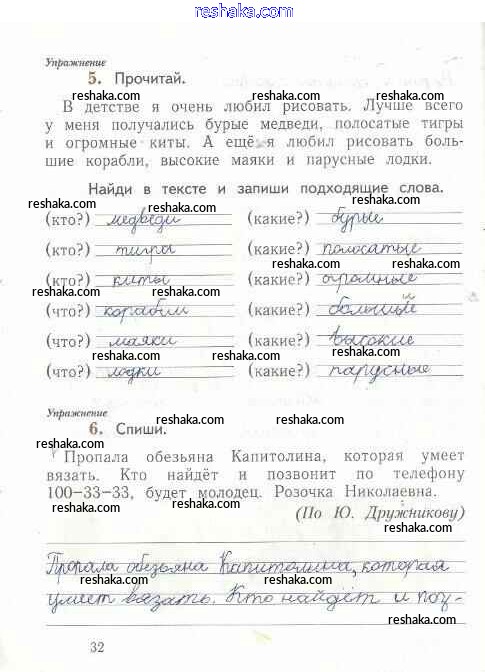 reshaka.com
Упражнение
5. Прочитай.
reshaka.com reshaka.com
В детстве я очень любил рисовать. Лучше всего
reshaka.com reshaka.com
у меня получались бурые медведи, полосатые тигры
и огромные киты. А ещё я любил рисовать боль-
reshaka.com reshaka.com
шие корабли, высокие маяки и парусные лодки.
Найди в тексте и запиши подходящие слова.
reshaka.com reshaka.com
(кто?) медведи (какие?) бурые
reshaka.com reshaka.com
(кто?) тигры (какие?) полосатые
reshaka.com reshaka.com
(кто?) киты (какие?) огромные
reshaka.com reshaka.com
(что?) корабли (какие?) большие
reshaka.com reshaka.com
(что?) маяки (какие?) высокие
reshaka.com reshaka.com
(что?) лодки (какие?) парусные
reshaka.com reshaka.com
Упражнение
6. Спиши.
reshaka.com reshaka.com
Пропала обезьяна Капитолина, которая умеет
reshaka.com reshaka.com
вязать. Кто найдёт и позвонит по телефону
100–33–33, будет молодец. Розочка Николаевна.
reshaka.com reshaka.com
(По Ю. Дружникову)
reshaka.com reshaka.com
Пропала обезьяна Капитолина, которая
reshaka.com reshaka.com
умеет вязать. Кто найдёт и поз-
reshaka.com reshaka.com
32
reshaka.com reshaka.com